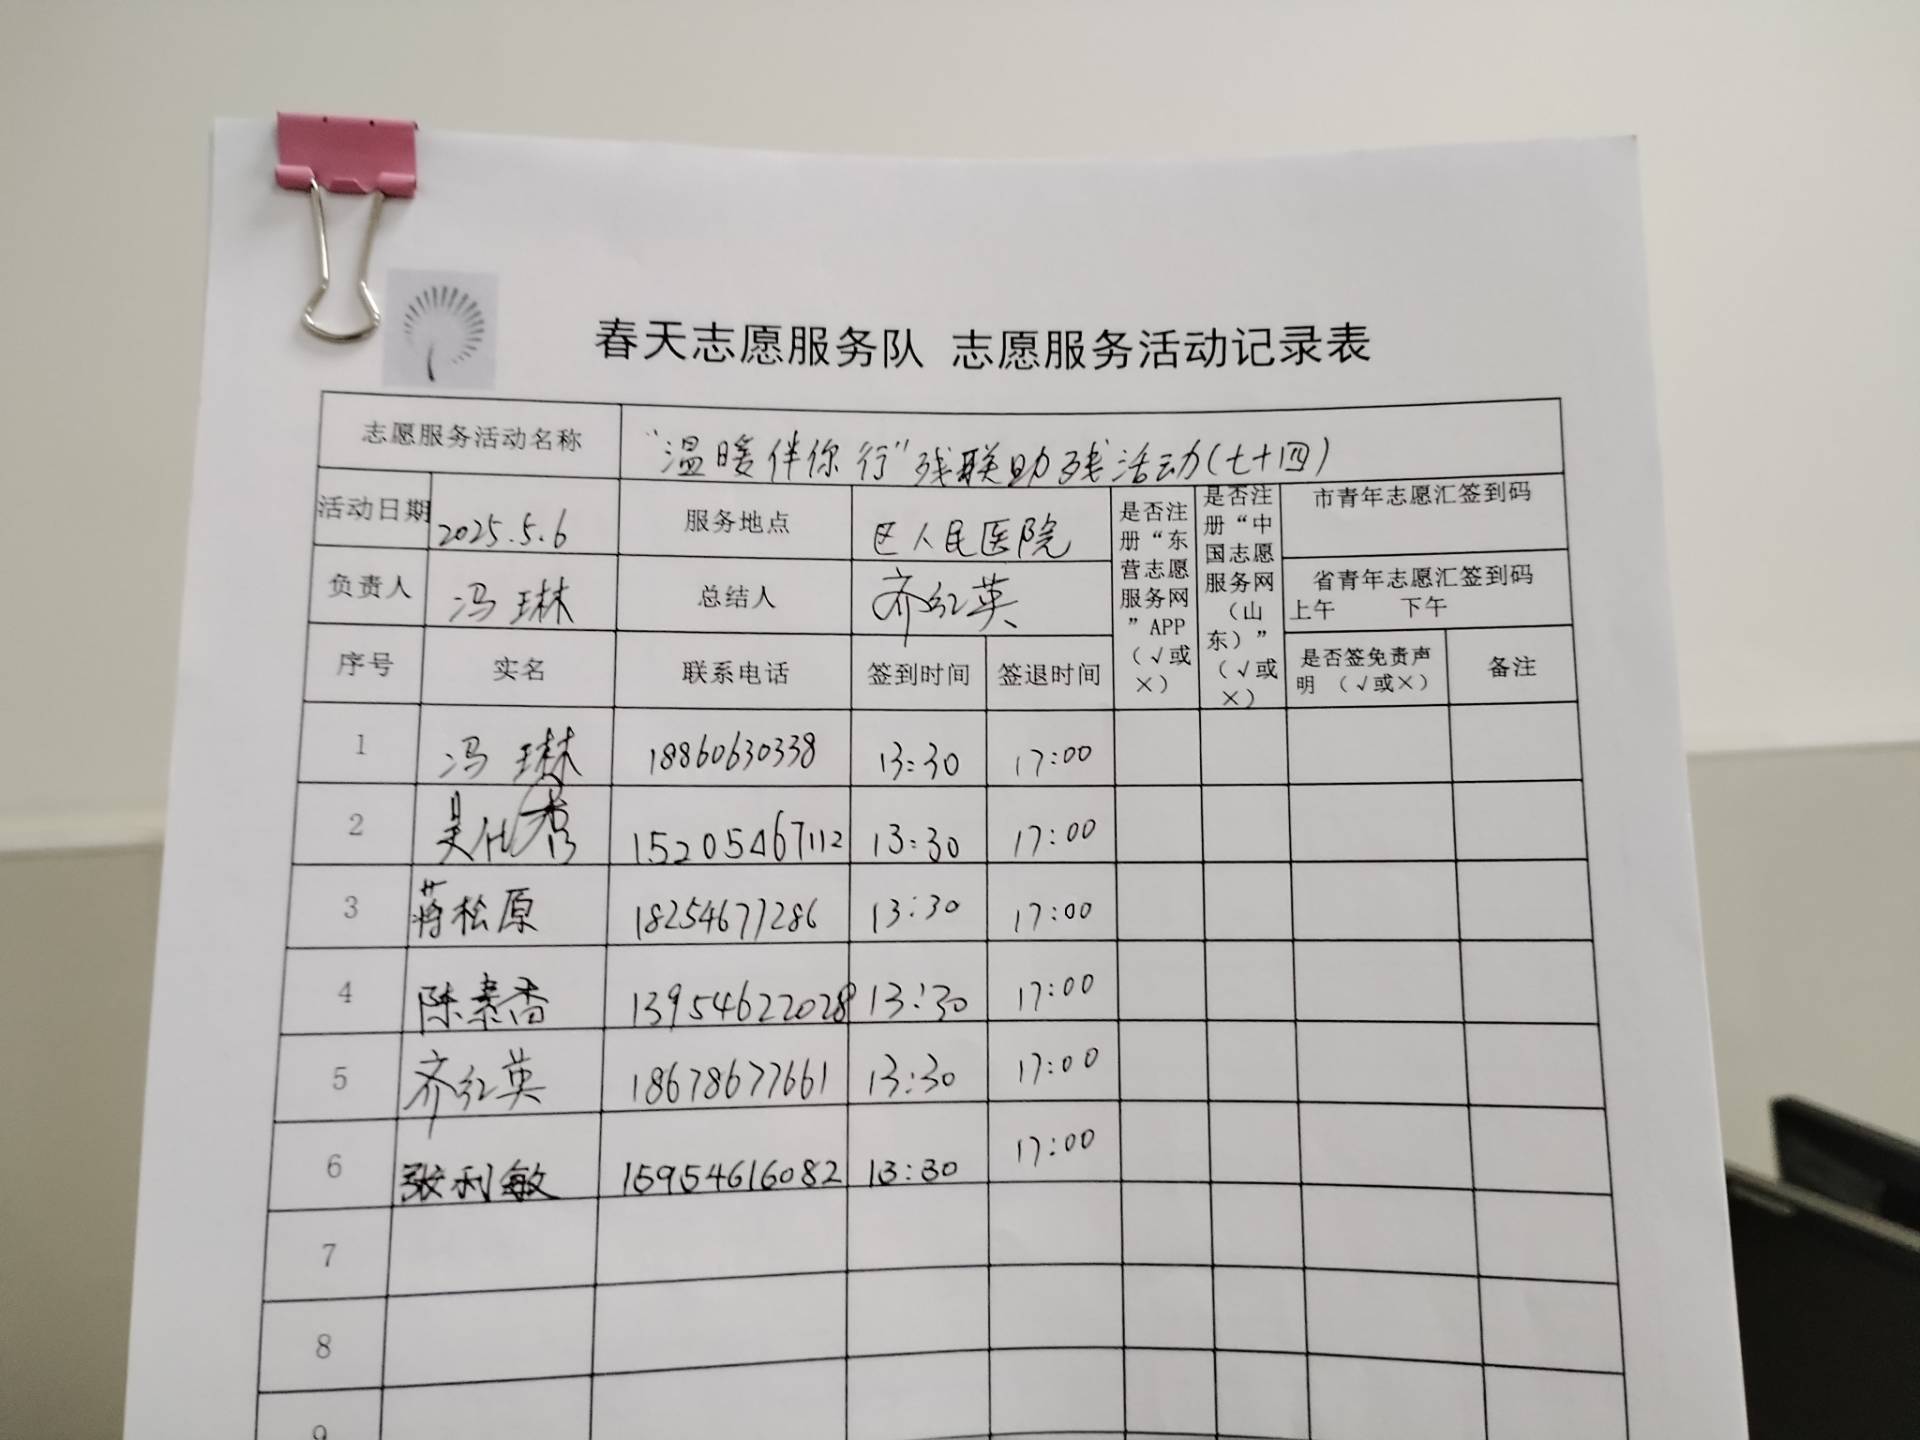 春天志愿服务队 志愿服务活动记录表
志愿服务活动名称 “温暖伴你行”残联助残活动(七十四)
活动日期 2025.5.6 服务地点 区人民医院
是否注册“东营志愿服务网”APP（√或×）
是否注册“中国志愿服务网（山东）”（√或×）
市青年志愿汇签到码
负责人 冯琳 总结人 齐红英
省青年志愿汇签到码
上午 下午
序号 实名 联系电话 签到时间 签退时间 是否签免责声明 （√或×） 备注
1 冯琳 18860630338 13:30 17:00
2 15205467112 13:30 17:00
3 蒋松原 18254677286 13:30 17:00
4 陈素香 13954622028 13:30 17:00
5 齐红英 18678677661 13:30 17:00
6 张利敏 15954616082 13:30 17:00
7
8
9